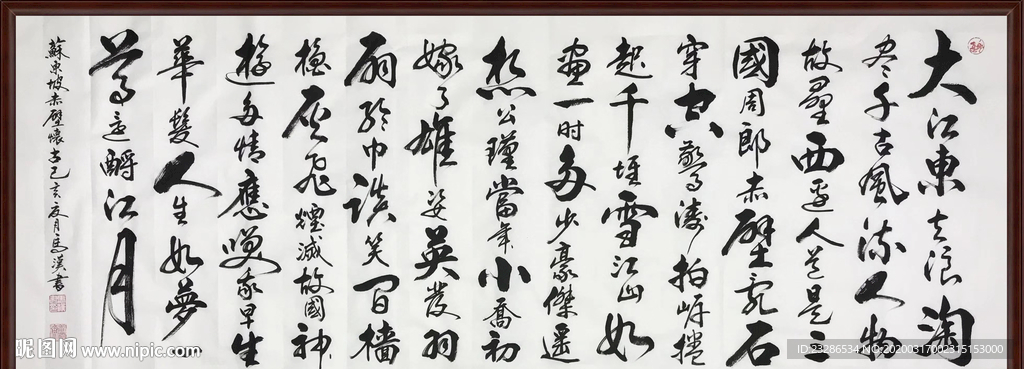 大江東去浪淘
盡千古風流人物
故壘西邊人道是三
國周郎赤壁亂石
穿空驚濤拍岸捲
起千堆雪江山如
畫一时多少豪傑遥
想公瑾當年小喬初
嫁了雄姿英發羽
扇綸巾談笑间檣
櫓灰飛煙滅故國神
遊多情應笑我早生
華髮人生如夢
一尊還酹江月
蘇東坡赤壁懷古己亥夏月馬漢書
昵图网 www.nipic.com
ID:23286534 NO:20200317002315153000